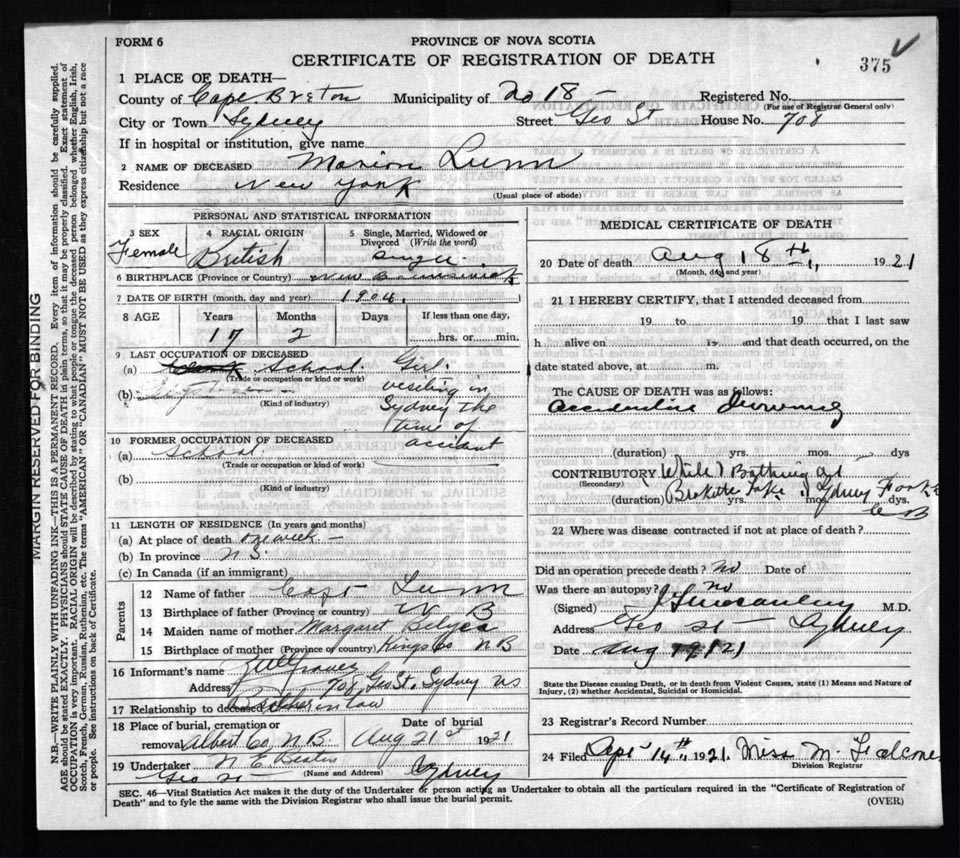 FORM 6
PROVINCE OF NOVA SCOTIA
CERTIFICATE OF REGISTRATION OF DEATH
375
1 PLACE OF DEATH—
County of Cape Breton Municipality of No 18 Registered No.
(For use of Registrar General only)
City or Town Sydney Street Geo St House No. 708
If in hospital or institution, give name
2 NAME OF DECEASED Marion Lunn
Residence New York
(Usual place of abode)
PERSONAL AND STATISTICAL INFORMATION
3 SEX Female
4 RACIAL ORIGIN British
5 Single, Married, Widowed or Divorced (Write the word) Single
6 BIRTHPLACE (Province or Country) New Brunswick
7 DATE OF BIRTH (month, day and year) 1904.
8 AGE Years Months Days If less than one day,
17 2 hrs. or min.
9 LAST OCCUPATION OF DECEASED
(a) School Girl
(Trade or occupation or kind of work)
(b) veseting in
(Kind of industry)
Sydney the
time of
accident
10 FORMER OCCUPATION OF DECEASED
(a) School
(Trade or occupation or kind of work)
(b)
(Kind of industry)
11 LENGTH OF RESIDENCE (In years and months)
(a) At place of death one week —
(b) In province N S.
(c) In Canada (if an immigrant)
Parents
12 Name of father Capt Lunn
13 Birthplace of father (Province or country) N B
14 Maiden name of mother Margaret Belyea
15 Birthplace of mother (Province or country) Kings Co NB
16 Informant's name
Address 708 Geo St. Sydney NS
17 Relationship to deceased Brother in law
18 Place of burial, cremation or removal Albert Co, N B
Date of burial Aug 21st 1921
19 Undertaker N E
(Name and Address)
Geo St Sydney
MEDICAL CERTIFICATE OF DEATH
20 Date of death Aug 18th, 1921
(Month, day and year)
21 I HEREBY CERTIFY, that I attended deceased from
19 to 19 that I last saw
h alive on 19 and that death occurred, on the
date stated above, at m.
The CAUSE OF DEATH was as follows:
(duration) yrs. mos. dys
CONTRIBUTORY While Bathing at
(Secondary)
(duration) Lake yrs. Sydney mos. Forks dys.
C B
22 Where was disease contracted if not at place of death?
Did an operation precede death? No Date of
Was there an autopsy? no
(Signed) M.D.
Address Geo St — Sydney
Date Aug 19/21
State the Disease causing Death, or in death from Violent Causes, state (1) Means and Nature of Injury, (2) whether Accidental, Suicidal or Homicidal.
23 Registrar's Record Number
24 Filed 14th 1921. Miss M.
Division Registrar
SEC. 46—Vital Statistics Act makes it the duty of the Undertaker or person acting as Undertaker to obtain all the particulars required in the "Certificate of Registration of
Death" and to fyle the same with the Division Registrar who shall issue the burial permit.
(OVER)
MARGIN RESERVED FOR BINDING
N.B.—WRITE PLAINLY WITH UNFADING INK—THIS IS A PERMANENT RECORD. Every item of information should be carefully supplied.
AGE should be stated EXACTLY. PHYSICIANS should STATE CAUSE OF DEATH in plain terms, so that it may be properly classified. Exact statement of
OCCUPATION is very important. RACIAL ORIGIN will be described by stating to what people or tongue the deceased person belonged whether English, Irish,
Scotch, French, German, Russian, Ruthenian, etc. The terms "AMERICAN" OR "CANADIAN" MUST NOT BE USED as they express citizenship but not a race
or people. See instructions on back of Certificate.